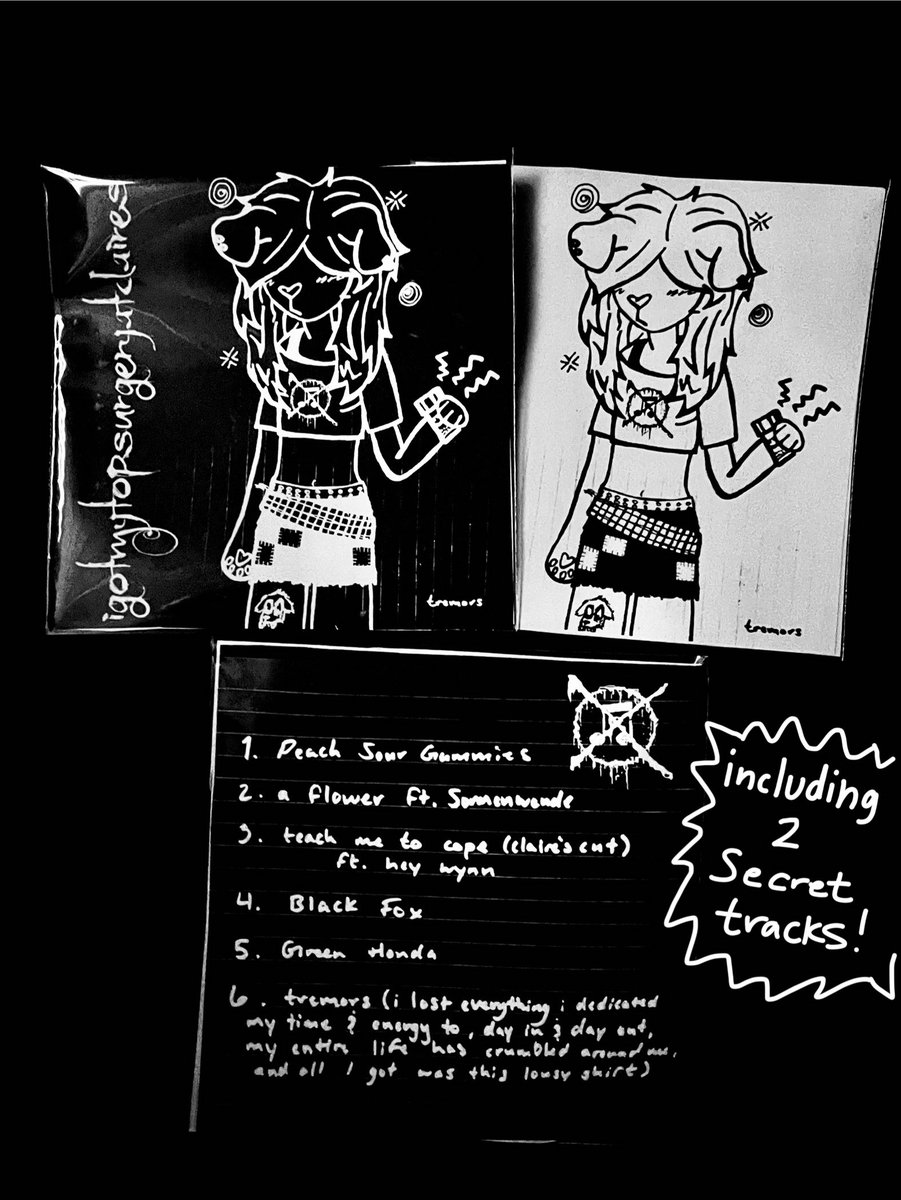 igotmytopsurgeryatclaires
tremors
tremors
1. Peach Sour Gummies
2. a flower ft. Sonnenwende
3. teach me to cope (claire's cut)
ft. hey wynn
4. Black Fox
5. Green Honda
6. tremors (i lost everything i dedicated
my time & energy to, day in & day out,
my entire life has crumbled around me,
and all I got was this lousy shirt)
including
2
Secret
tracks!